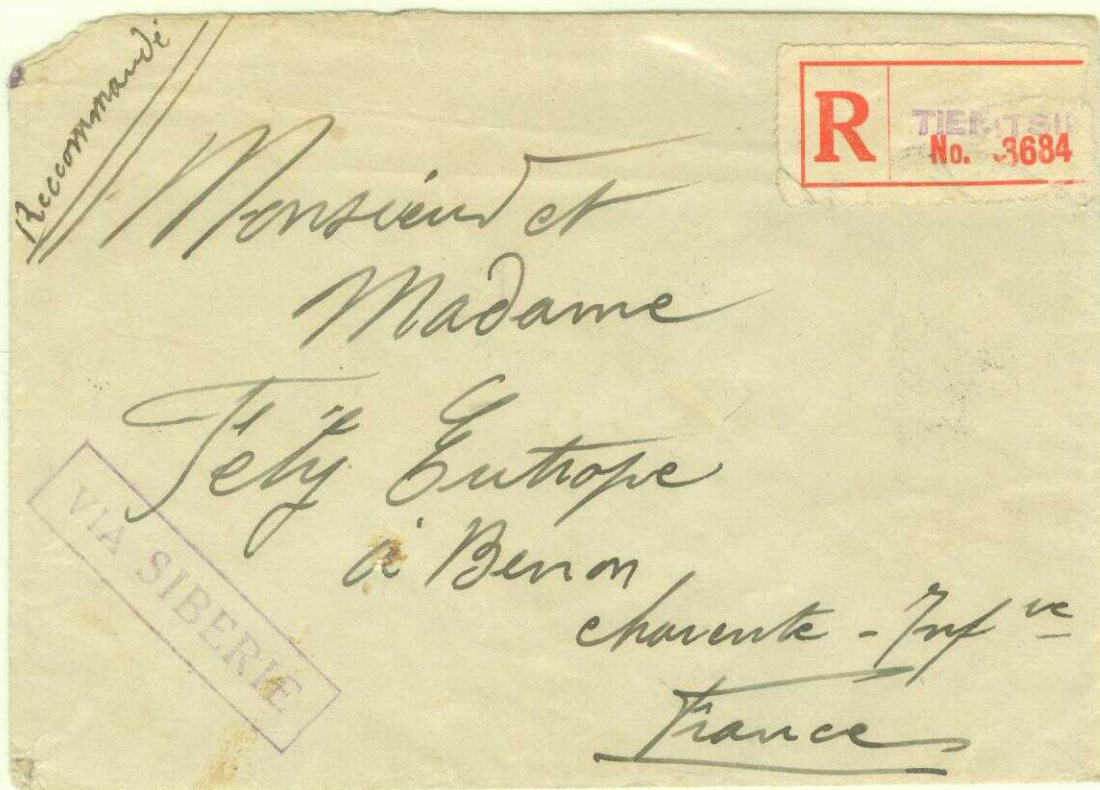 Reccommandé
R
TIENTSIN
No. 3684
Monsieur et
Madame
Fély Eutrope
à Benon
charente - Infre
France
VIA SIBERIE